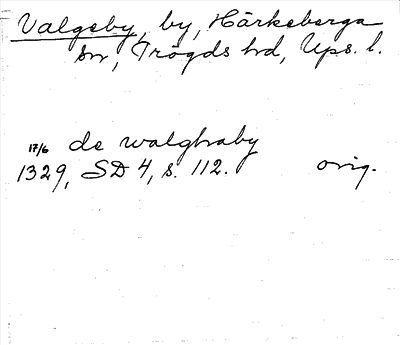 Valgeby, by, Härkeberga
sn, Trögds hd, Ups. l.
17/6 de walghaby
1329, SD 4, s. 112. orig.